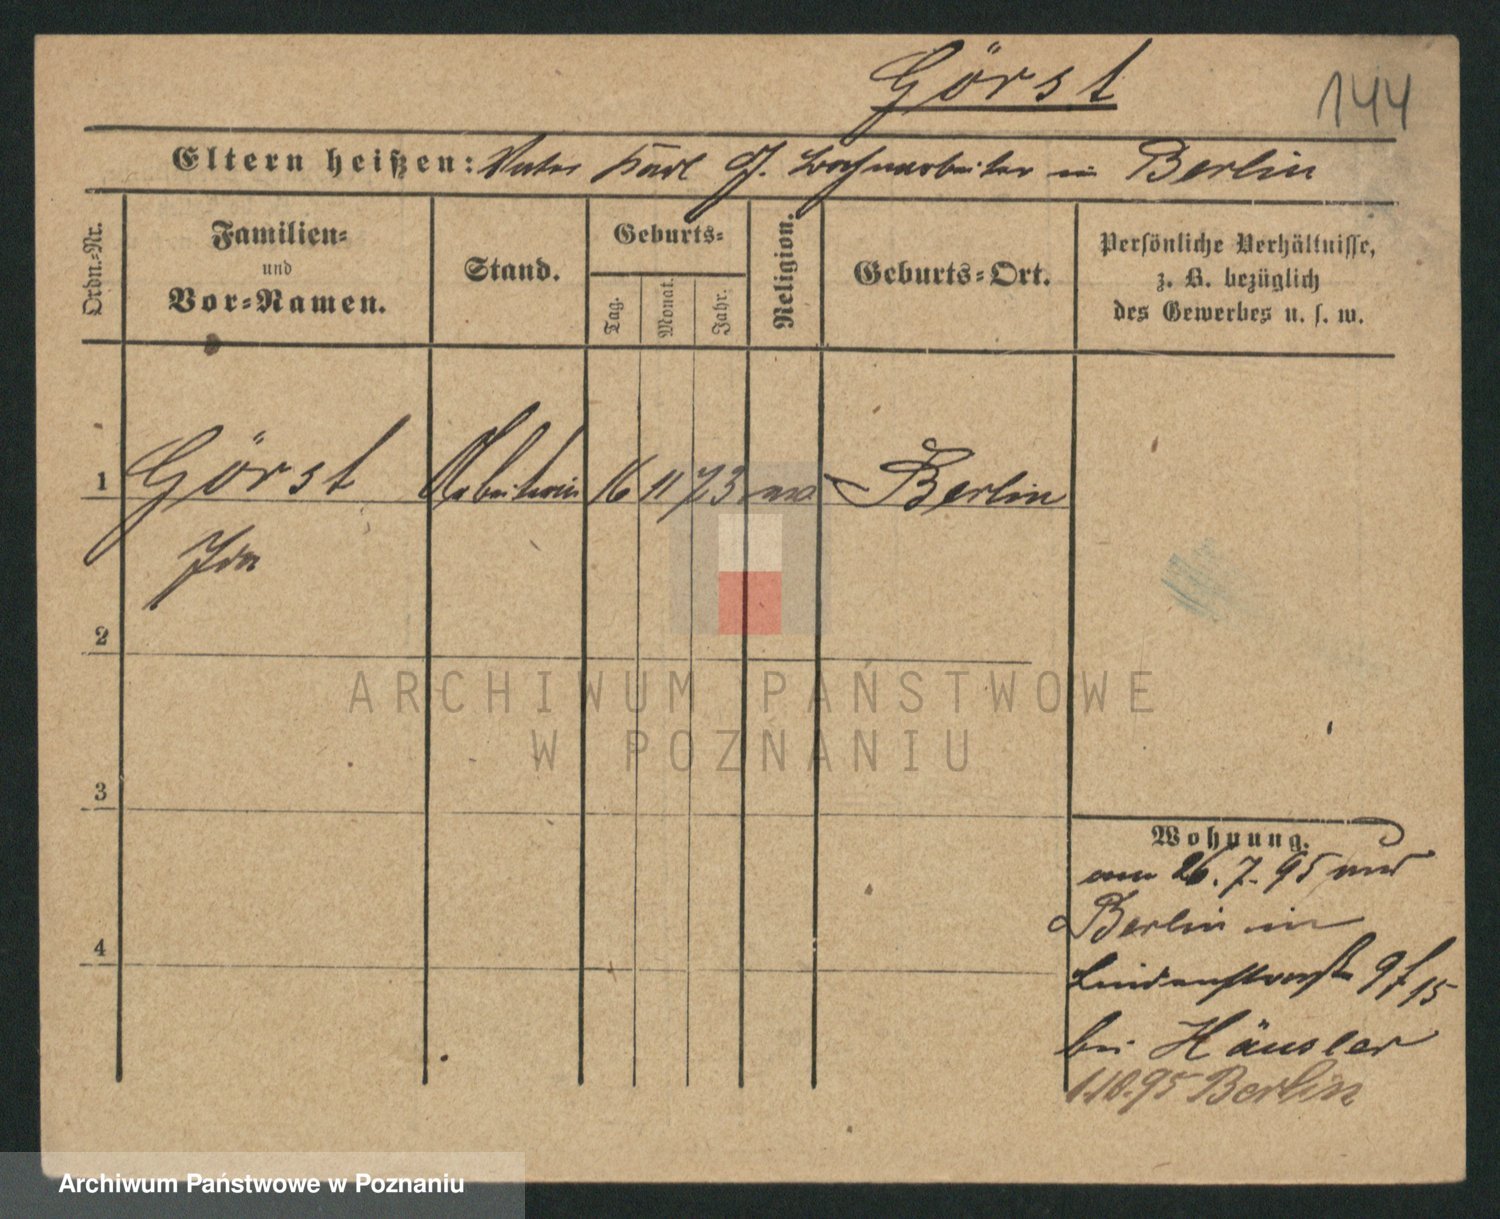 Görst
144
Eltern heißen: Vater Karl G. in Berlin
Ordn.-Nr.
Familien-
und
Vor-Namen.
Stand.
Geburts-
Tag.
Monat.
Jahr.
Religion.
Geburts-Ort.
Persönliche Verhältnisse,
z. B. bezüglich
des Gewerbes u. s. w.
1 Görst Arbeiterin 16 11 73 Berlin
Ida
2
3
4
Wohnung.
am 26.7.95
Berlin in
Lindenstraße
bei Häusler
1.10.95 Berlin
ARCHIWUM PAŃSTWOWE
W POZNANIU
Archiwum Państwowe w Poznaniu